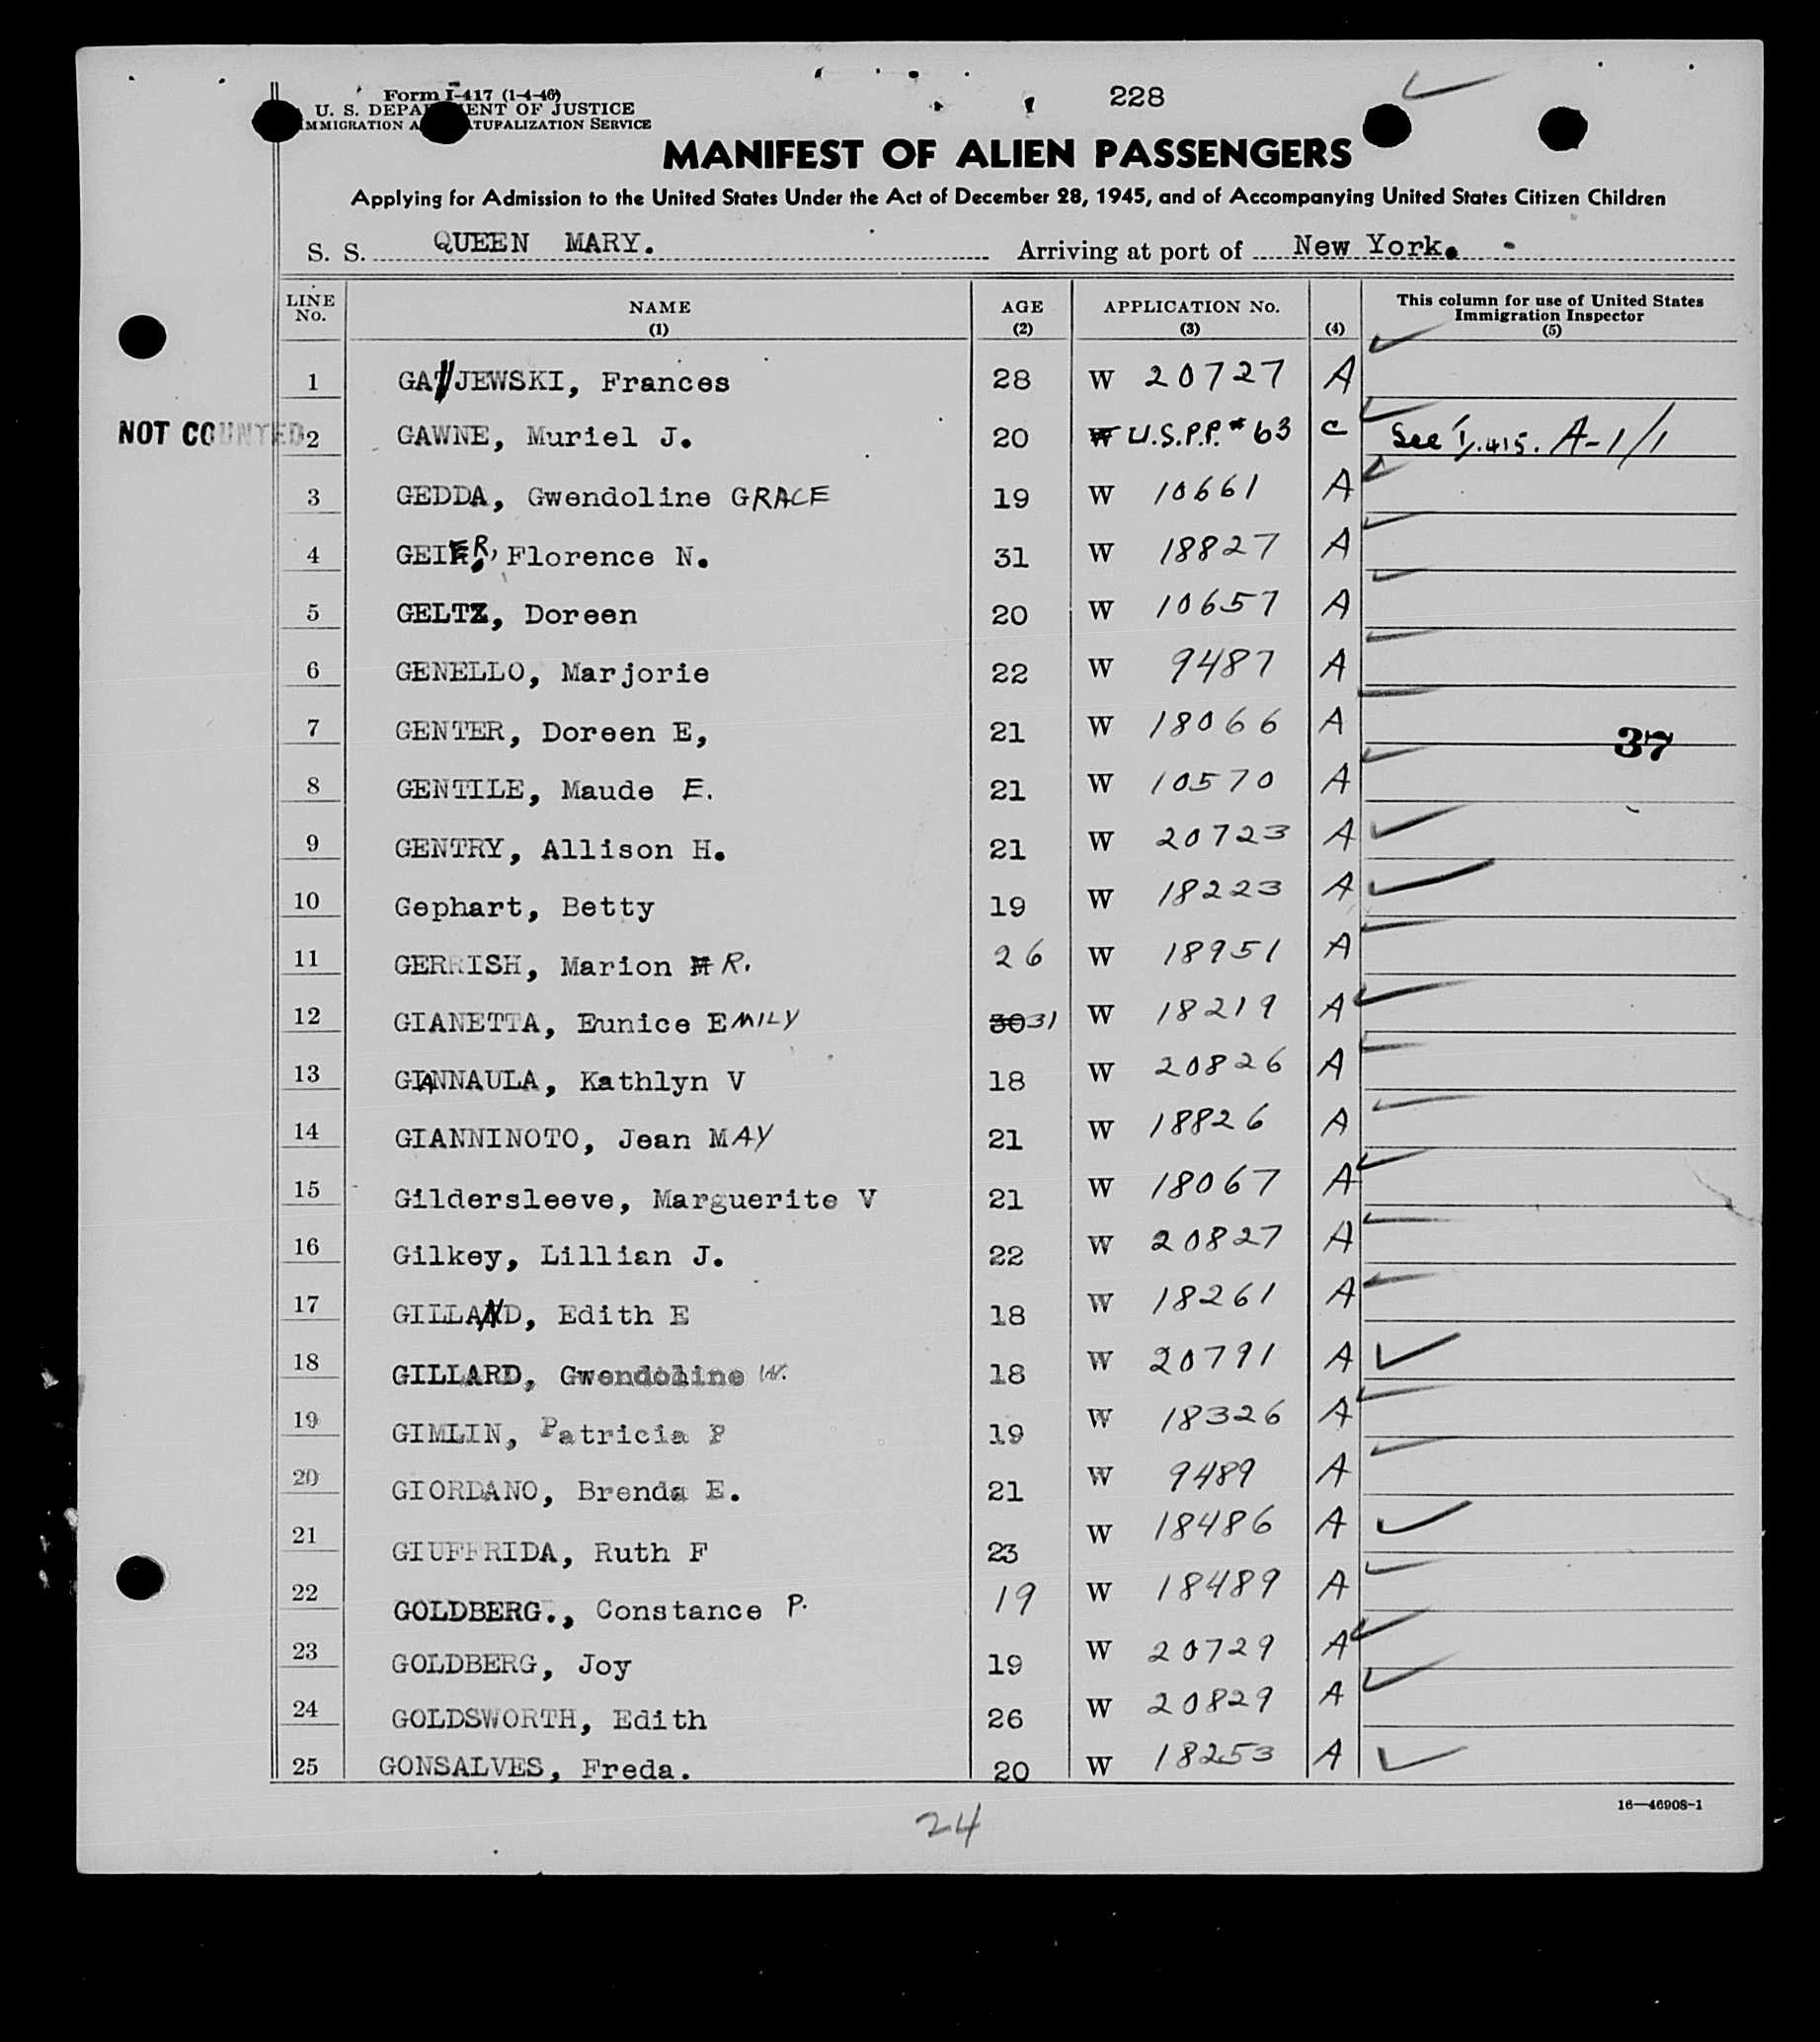 Form I-417 (1-4-46)
228
U. S. DEPARTMENT OF JUSTICE
IMMIGRATION AND NATURALIZATION SERVICE
MANIFEST OF ALIEN PASSENGERS
Applying for Admission to the United States Under the Act of December 28, 1945, and of Accompanying United States Citizen Children
S. S. QUEEN MARY. Arriving at port of New York.
LINE No. NAME (1) AGE (2) APPLICATION No. (3) (4) This column for use of United States Immigration Inspector (5)
1 GAJEWSKI, Frances 28 W 20727 A
NOT COUNTED 2 GAWNE, Muriel J. 20 W U.S.P.P. # 63 C See I/415. A-1/1
3 GEDDA, Gwendoline GRACE 19 W 10661 A
4 GEIER, Florence N. 31 W 18827 A
5 GELTZ, Doreen 20 W 10657 A
6 GENELLO, Marjorie 22 W 9487 A
7 GENTER, Doreen E, 21 W 18066 A 37
8 GENTILE, Maude E. 21 W 10570 A
9 GENTRY, Allison H. 21 W 20723 A
10 Gephart, Betty 19 W 18223 A
11 GERRISH, Marion R. 26 W 18951 A
12 GIANETTA, Eunice EMILY 30 31 W 18219 A
13 GIANNAULA, Kathlyn V 18 W 20826 A
14 GIANNINOTO, Jean MAY 21 W 18826 A
15 Gildersleeve, Marguerite V 21 W 18067 A
16 Gilkey, Lillian J. 22 W 20827 A
17 GILLAND, Edith E 18 W 18261 A
18 GILLARD, Gwendoline W. 18 W 20791 A
19 GIMLIN, Patricia P 19 W 18326 A
20 GIORDANO, Brenda E. 21 W 9489 A
21 GIUFFRIDA, Ruth F 23 W 18486 A
22 GOLDBERG., Constance P. 19 W 18489 A
23 GOLDBERG, Joy 19 W 20729 A
24 GOLDSWORTH, Edith 26 W 20829 A
25 GONSALVES, Freda. 20 W 18253 A
16—46908-1
24